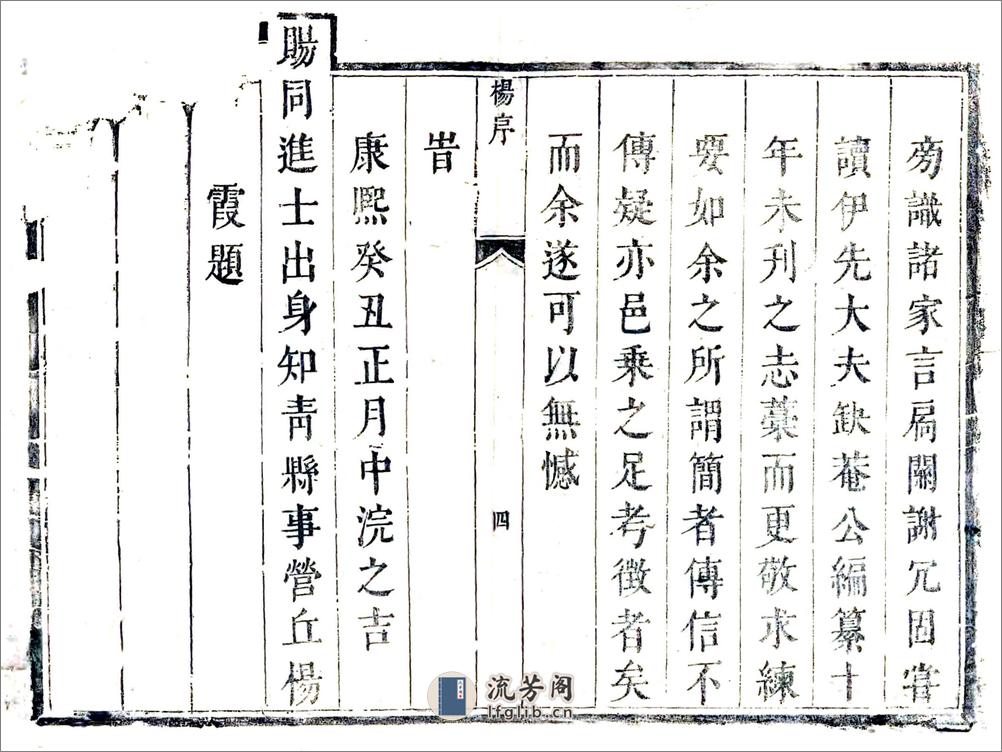 旁識諸家言扃關謝冗因嘗
讀伊先大夫缺菴公編纂十
年未刊之志藁而更敬求練
要如余之所謂簡者傳信不
傳疑亦邑乘之足考徵者矣
而余遂可以無憾
楊序
四
旹
康熙癸丑正月中浣之吉
賜同進士出身知青縣事營丘楊
霞題
流芳阁
lfglib.cn